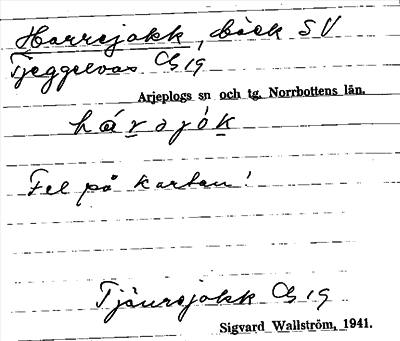 Harrejokk, bäck SV
Tjeggelvas Cg 19
Arjeplogs sn och tg. Norrbottens län.
hárajók
Fel på kartan!
Tjåurejokk Cg 19
Sigvard Wallström, 1941.